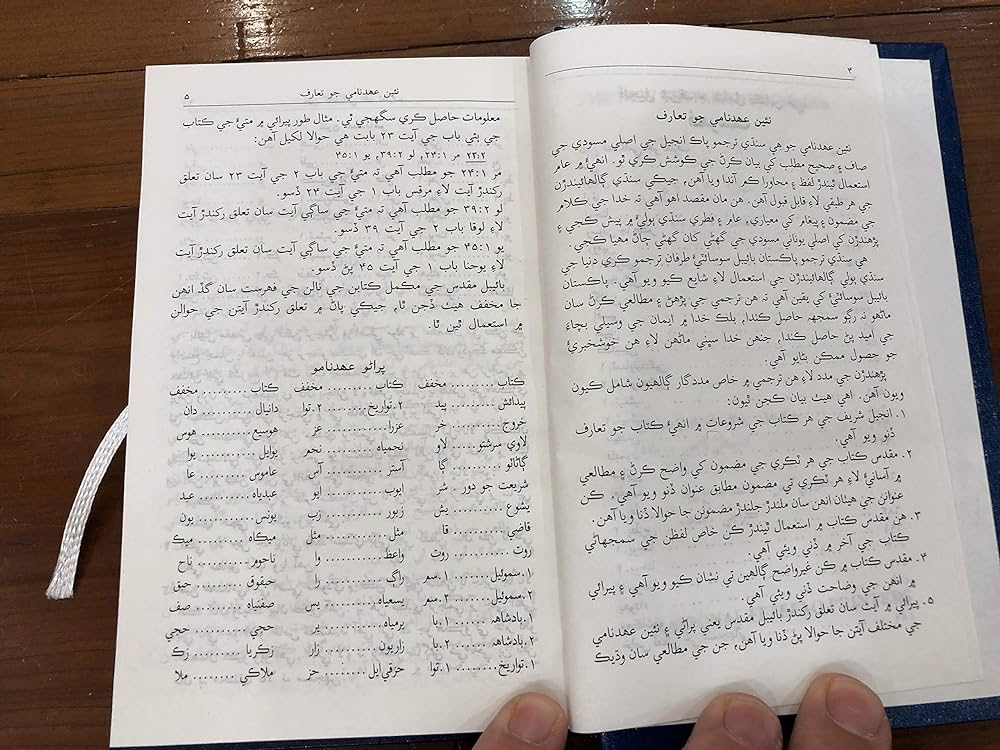 ۴
نئين عهدنامي جو تعارف
نئين عهدنامي جو هي سنڌي ترجمو پاڪ انجيل جي اصلي مسودي جي
صاف ۽ صحيح مطلب کي بيان ڪرڻ جي ڪوشش ڪري ٿو. انهيءَ ۾ عام
استعمال ٿيندڙ لفظ ۽ محاورا ڪم آندا ويا آهن، جيڪي سنڌي ڳالهائيندڙن
جي هر طبقي لاءِ قابل قبول آهن. هن مان مقصد اهو آهي تہ خدا جي ڪلام
جي مضمون ۽ پيغام کي معياري، عام ۽ فطري سنڌي ٻوليءَ ۾ پيش ڪجي ۽
پڙهندڙن کي اصلي يوناني مسودي جي گهڻي کان گهڻي ڄاڻ مهيا ڪجي.
هي سنڌي ترجمو پاڪستان بائيبل سوسائٽيءَ طرفان ترجمو ڪري دنيا جي
سنڌي ٻولي ڳالهائيندڙن جي استعمال لاءِ شايع ڪيو ويو آهي. پاڪستان
بائيبل سوسائٽيءَ کي يقين آهي تہ هن ترجمي جي پڙهڻ ۽ مطالعي ڪرڻ سان
ماڻهو نہ رڳو سمجهہ حاصل ڪندا، بلڪ خدا ۾ ايمان جي وسيلي بچاءَ
جي اميد پڻ حاصل ڪندا، جنهن خدا سڀني ماڻهن لاءِ هن خوشخبريءَ
جو حصول ممڪن بڻايو آهي.
پڙهندڙن جي مدد لاءِ هن ترجمي ۾ خاص مددگار ڳالهيون شامل ڪيون
ويون آهن. اهي هيٺ بيان ڪجن ٿيون:
۱. انجيل شريف جي هر ڪتاب جي شروعات ۾ انهيءَ ڪتاب جو تعارف
ڏنو ويو آهي.
۲. مقدس ڪتاب جي هر ٽڪري جي مضمون کي واضح ڪرڻ ۽ مطالعي
۾ آسانيءَ لاءِ هر ٽڪري تي مضمون مطابق عنوان ڏنو ويو آهي. ڪن
عنوانن جي هيٺان انهن سان ملندڙ جلندڙ مضمونن جا حوالا ڏنا ويا آهن.
۳. هن مقدس ڪتاب ۾ استعمال ٿيندڙ ڪن خاص لفظن جي سمجهاڻي
ڪتاب جي آخر ۾ ڏني ويئي آهي.
۴. مقدس ڪتاب ۾ ڪن غيرواضح ڳالهين تي نشان ڪيو ويو آهي ۽ پيرائي
۾ انهن جي وضاحت ڏني ويئي آهي.
۵. پيرائي ۾ آيت سان تعلق رکندڙ بائيبل مقدس يعني پراڻي ۽ نئين عهدنامي
جي مختلف آيتن جا حوالا پڻ ڏنا ويا آهن، جن جي مطالعي سان وڌيڪ
نئين عهدنامي جو تعارف ۵
معلومات حاصل ڪري سگهجي ٿي. مثال طور پيرائي ۾ متيءَ جي ڪتاب
جي ٻئي باب جي آيت ۲۳ بابت هي حوالا لکيل آهن:
۲:۲۳ مر ۱:۲۴، لو ۲:۳۹، يو ۱:۴۵
مر ۱:۲۴ جو مطلب آهي تہ متيءَ جي باب ۲ جي آيت ۲۳ سان تعلق
رکندڙ آيت لاءِ مرقس باب ۱ جي آيت ۲۴ ڏسو.
لو ۲:۳۹ جو مطلب آهي تہ متيءَ جي ساڳي آيت سان تعلق رکندڙ آيت
لاءِ لوقا باب ۲ جي آيت ۳۹ ڏسو.
يو ۱:۴۵ جو مطلب آهي تہ متيءَ جي ساڳي آيت سان تعلق رکندڙ آيت
لاءِ يوحنا باب ۱ جي آيت ۴۵ پڻ ڏسو.
بائيبل مقدس جي مڪمل ڪتابن جي نالن جي فهرست سان گڏ انهن
جا مخفف هيٺ ڏجن ٿا، جيڪي پاڻ ۾ تعلق رکندڙ آيتن جي حوالن
۾ استعمال ٿين ٿا.
پراڻو عهدنامو
ڪتاب ......... مخفف ڪتاب ......... مخفف ڪتاب ......... مخفف
پيدائش ......... پيد ۲.تواريخ ........ ۲.توا دانيال ......... دان
خروج ......... خر عزرا ......... عز هوسيع ......... هوس
لاوي سرشتو .... لاو نحمياہ ......... نحم يوايل ......... يوا
ڳاڻاٽو ......... ڳا آستر ......... آس عاموس ......... عا
شريعت جو دور . شر ايوب ......... ايو عبدياہ ......... عبد
يشوع ......... يش زبور ......... زب يونس ......... يون
قاضي ......... قا مثل ......... مثل ميڪاہ ......... ميڪ
روت ......... روت واعظ ......... وا ناحوم ......... ناح
۱.سموئيل ...... ۱.سم راڳ ......... را حبقوق ......... حبق
۲.سموئيل ...... ۲.سم يسعياہ ......... يس صفنياہ ......... صف
۱.بادشاهہ ...... ۱.با يرمياہ ......... ير حجي ......... حجي
۲.بادشاهہ ...... ۲.با زاريون ......... زار زڪريا ......... زڪ
۱.تواريخ ........ ۱.توا حزقي‌ايل ........ حز ملاڪي ........ ملا